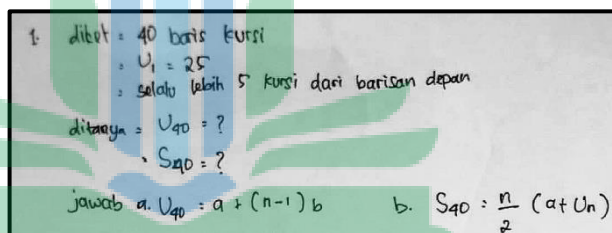 1. diket = 40 baris kursi
: U₁ = 25
: selalu lebih 5 kursi dari barisan depan
ditanya = U₄₀ = ?
• S₄₀ = ?
jawab a. U₄₀ = a + (n-1) b b. S₄₀ : n/2 (a + Un)